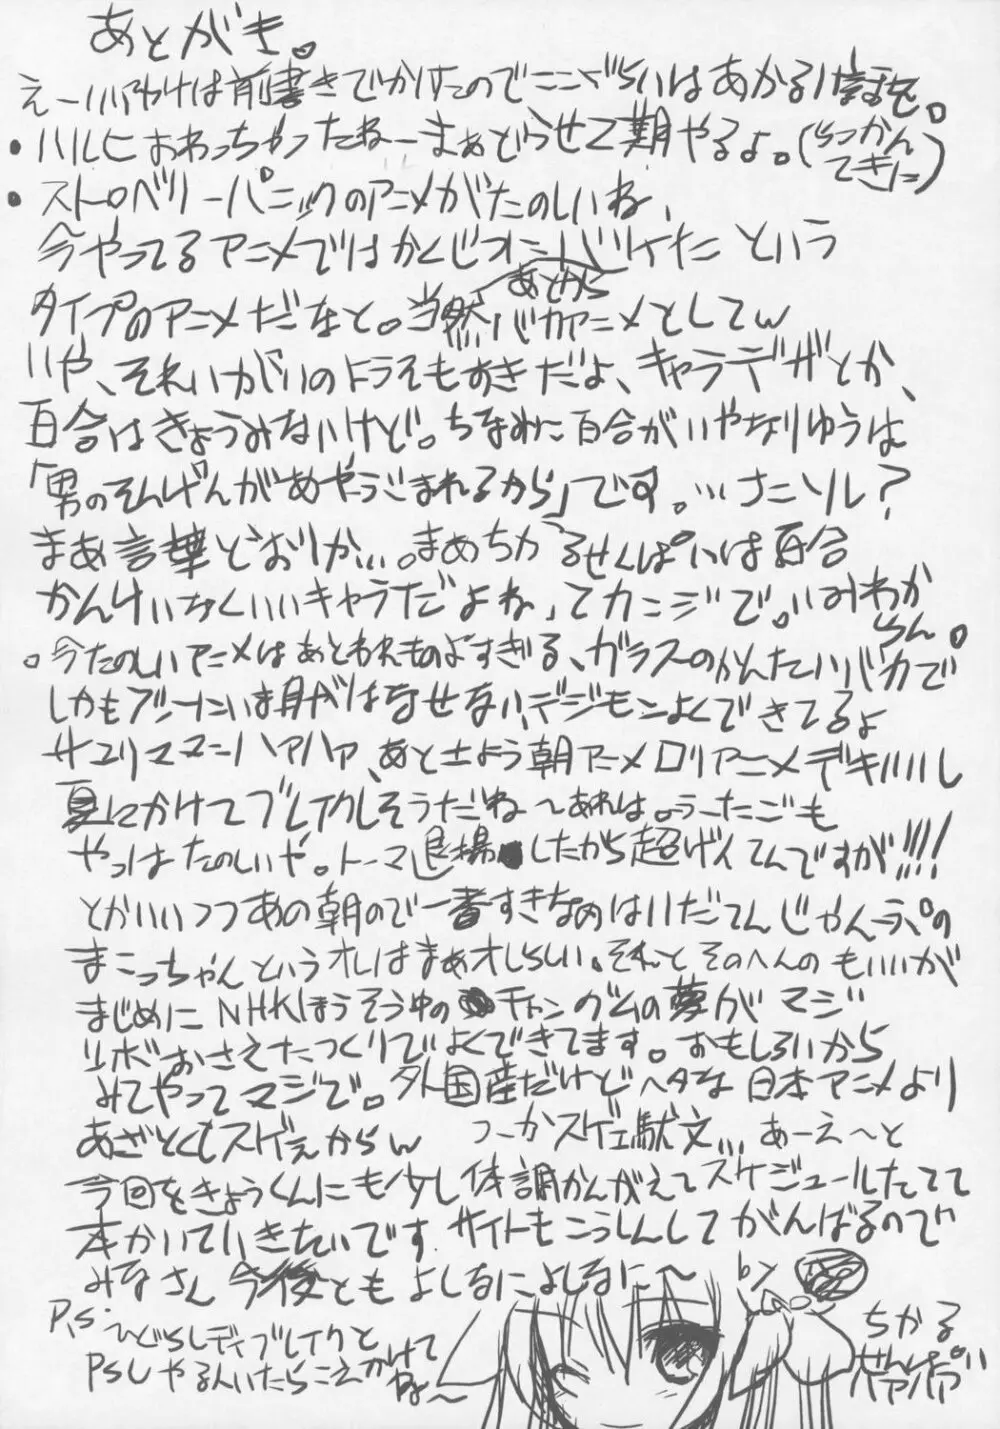 あとがき。
えーいいわけは前書きでかけたのでここぐらいはあかるい話を。
・ハルヒおわっちゃったねーまぁどうせ2期やるよ。(らっかんてきに)
・ストロベリーパニックのアニメがたのしいね、
今やってるアニメではかくじつにバケた という
タイプのアニメだなと。当然バカアニメとしてw
あとから
いや、それいがいのトラえもすきだよ、キャラデザとか、
百合はきょうみないけど。ちなみに百合がいやなりゆうは
「男のそんげんがあやうごまれるから」です。…なにソレ?
まあ言葉どおりか…。まぁちかるせんぱいは百合
かんけいなくいいキャラだよね、てカンジで。いみわからん。
。今たのしいアニメはあとわれものよすぎる、ガラスのかんたいバカで
しかもブソーにいま目がはなせない、デジモンよくできてるよ
サユリママンハアハア、あと土よう朝アニメロリアニメデキいいし
夏にかけてブレイクしそうだね〜あれは。うーたごも
やっぱたのしいや。トーマ退場したから超げんてんですが!!!!
とかいいつつあの朝ので一番すきなのはいだてんじゃんぷの
まこっちゃんというオレはまぁオレらしい。それっとそのへんのもいいが
まじめにNHKほうそう中のチャングムの夢がマジ
ツボおさえたつくりでよくできてます。おもしろいから
みてやってマジで。外国産だけどヘタな日本アニメより
あざとくもスゲぇからw つーかスゲェ駄文… あーえ〜と
今回をきょうくんにも少し体調かんがえてスケジュールたてて
本かいていきたいです サイトもこうしんしてがんばるので
みなさん今後ともよしなによしなに〜
P.S.
ひぐらしデイブレイクと
PSUやる人いたらこえかけて
ね〜
ちかる
せんぱい
ハアハア